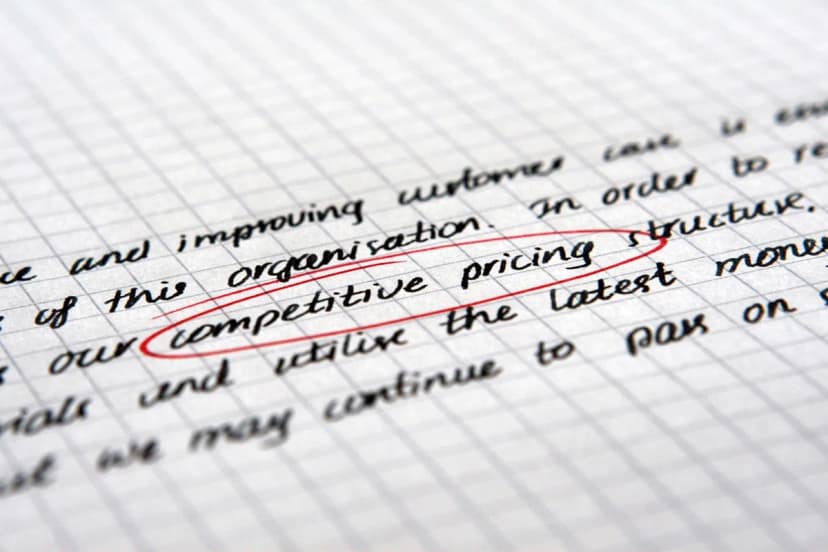 and improving customer care is
of this organisation. In order to re
our competitive pricing structure.
and utilise the latest money
we may continue to pass on